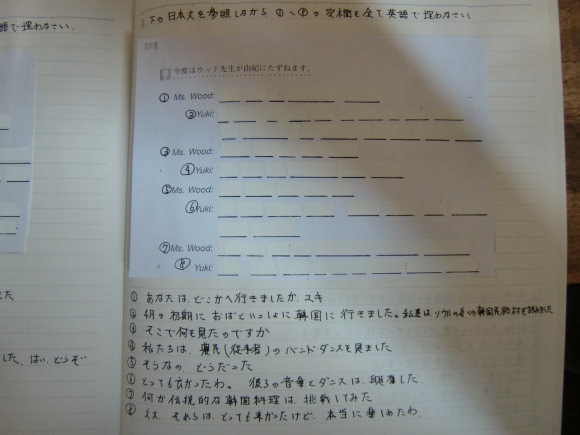 語で埋めなさい。
1. 下の日本文を参照しながら①〜⑧の空欄を全て英語で埋めなさい
今度はウッド先生が由紀にたずねます。
① Ms. Wood:
② Yuki:
③ Ms. Wood:
④ Yuki:
⑤ Ms. Wood:
⑥ Yuki:
⑦ Ms. Wood:
⑧ Yuki:
① あなたは、どこかへ行きましたか、ユキ
② 4月の初期におばといっしょに韓国に行きました。私達はソウルの近くの韓国民俗村を訪れました
③ そこで何を見たのですか
④ 私たちは、農民(従事者)のバンドダンスを見ました
⑤ そうなの、どうだった
⑥ とっても良かったわ。彼らの音楽とダンスは、興奮した。
⑦ 何か伝統的な韓国料理は、挑戦してみた
⑧ ええ、それらは、とっても辛かったけど、本当に楽しめたわ。
した
した、はい、どうぞ